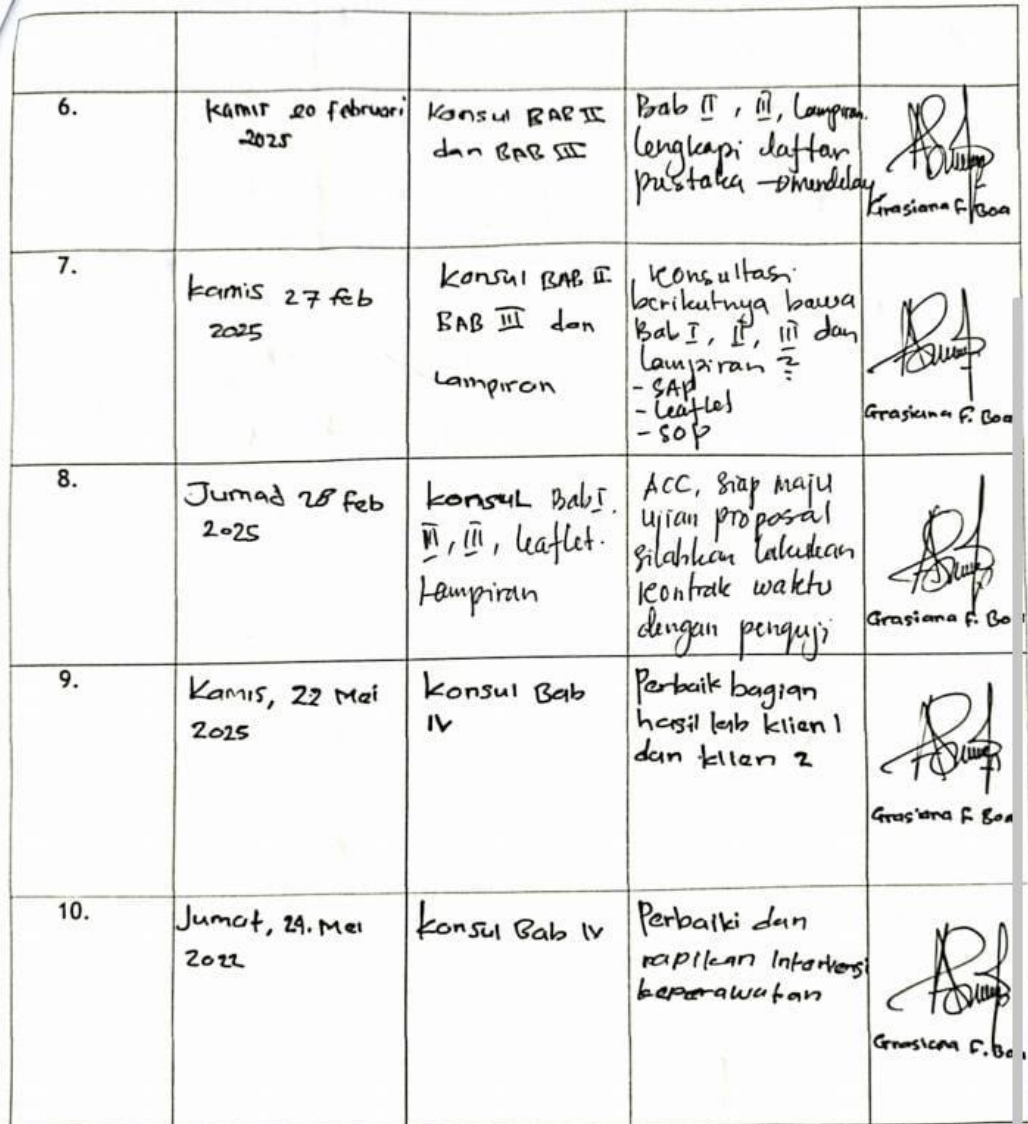 6.
Kamis 20 februari
2025
Konsul BAB II
dan BAB III
Bab II, III, Lampiran.
lengkapi daftar
pustaka → mendelay
Grasiana F. Boa
7.
kamis 27 feb
2025
Konsul BAB II.
BAB III dan
Lampiran
Konsultasi
berikutnya bawa
Bab I, II, III dan
lampiran
- SAP
- Leaflet
- SOP
Grasiana F. Boa
8.
Jumad 28 Feb
2025
konsul Bab I.
II, III, leaflet.
Lampiran
ACC, siap maju
ujian proposal
silahkan lakukan
kontrak waktu
dengan penguji
Grasiana F. Bo
9.
Kamis, 22 Mei
2025
konsul Bab
IV
Perbaik bagian
hasil lab klien 1
dan klien 2
Grasiana F. Boa
10.
Jumat, 24. Mei
2022
konsul Bab IV
Perbaiki dan
rapikan Intervensi
keperawatan
Grasiana F. Boa